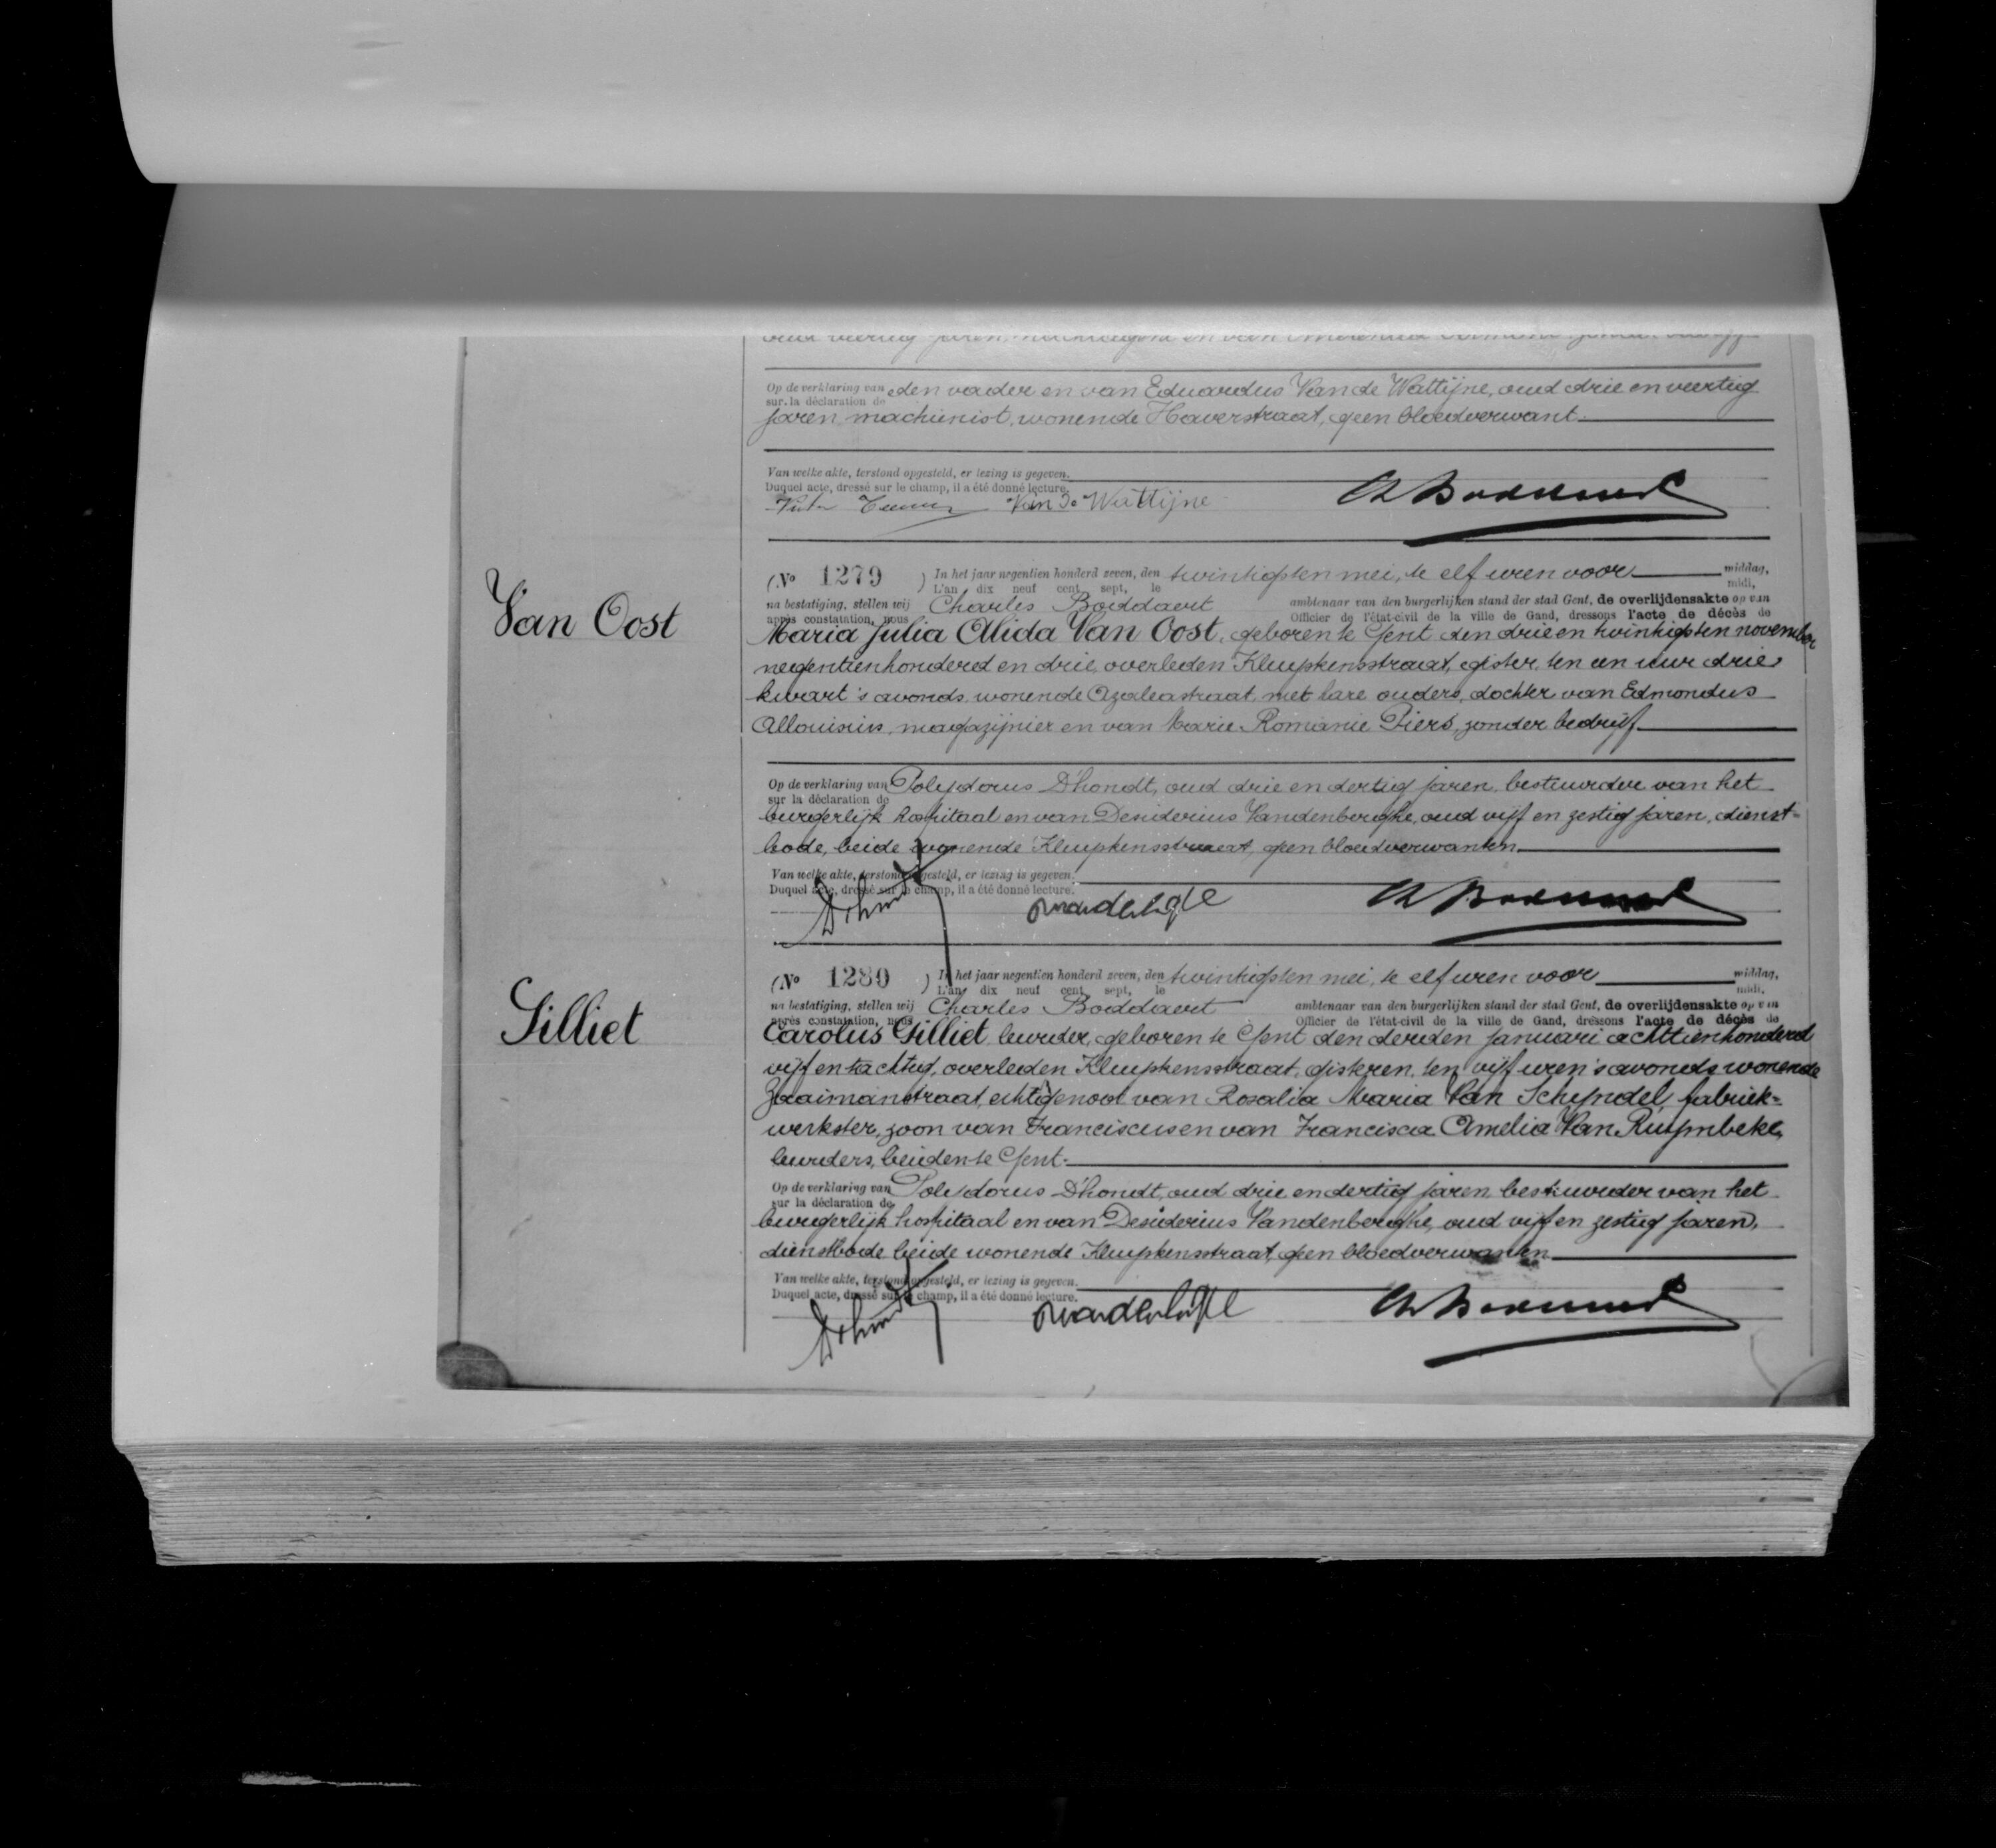 oud veertig jaren,
Op de verklaring van den vader en van Eduardus Van de Wattijne, oud drie en veertig
sur la déclaration de
jaren machienist, wonende Haverstraat, geen bloedverwant.
Van welke akte, terstond opgesteld, er lezing is gegeven.
Duquel acte, dressé sur le champ, il a été donné lecture.
Van De Wattijne
Van Oost
(No 1279 ) In het jaar negentien honderd zeven, den twintigsten mei, te elf uren voor middag,
L'an dix neuf cent sept, le midi,
na bestatiging, stellen wij Charles Boddaert ambtenaar van den burgerlijken stand der stad Gent, de overlijdensakte op van
après constatation, nous Officier de l'état-civil de la ville de Gand, dressons l'acte de décès de
Maria Julia Alida Van Oost, geboren te Gent den drie en twintigsten november
negentienhonderd en drie, overleden Kluyskensstraat, gister, ten een uur drie
kwart 's avonds, wonende Azaleastraat, met hare ouders, dochter van Edmondus
Allouisius, magazijnier en van Marie Romanie Piers, zonder bedrijf
Op de verklaring van Polydorus D'hondt, oud drie en dertig jaren, bestuurder van het
sur la déclaration de
burgerlijk hospitaal en van Desiderius Vandenberghe, oud vijf en zestig jaren, dienst-
bode, beide wonende Kluyskensstraat, geen bloedverwanten
Van welke akte, terstond opgesteld, er lezing is gegeven.
Duquel acte, dressé sur le champ, il a été donné lecture.
Gilliet
(No 1280 ) In het jaar negentien honderd zeven, den twintigsten mei, te elf uren voor middag,
L'an dix neuf cent sept, le midi.
na bestatiging, stellen wij Charles Boddaert ambtenaar van den burgerlijken stand der stad Gent, de overlijdensakte op van
après constatation, nous Officier de l'état-civil de la ville de Gand, dressons l'acte de décès de
Carolus Gilliet, leurder, geboren te Gent den derden januari achttienhonderd
vijf en tachtig, overleden Kluyskensstraat, gisteren, ten vijf uren 's avonds wonende
Zaaimanstraat, echtgenoot van Rosalia Maria Van Schijndel, fabriek-
werkster, zoon van Franciscus en van Francisca Amelia Van Ruymbeke,
leurders, beiden te Gent.
Op de verklaring van Polydorus D'hondt, oud drie en dertig jaren bestuurder van het
sur la déclaration de
burgerlijk hospitaal en van Desiderius Vandenberghe, oud vijf en zestig jaren,
dienstbode beide wonende Kluyskensstraat, geen bloedverwanten
Van welke akte, terstond opgesteld, er lezing is gegeven.
Duquel acte, dressé sur le champ, il a été donné lecture.